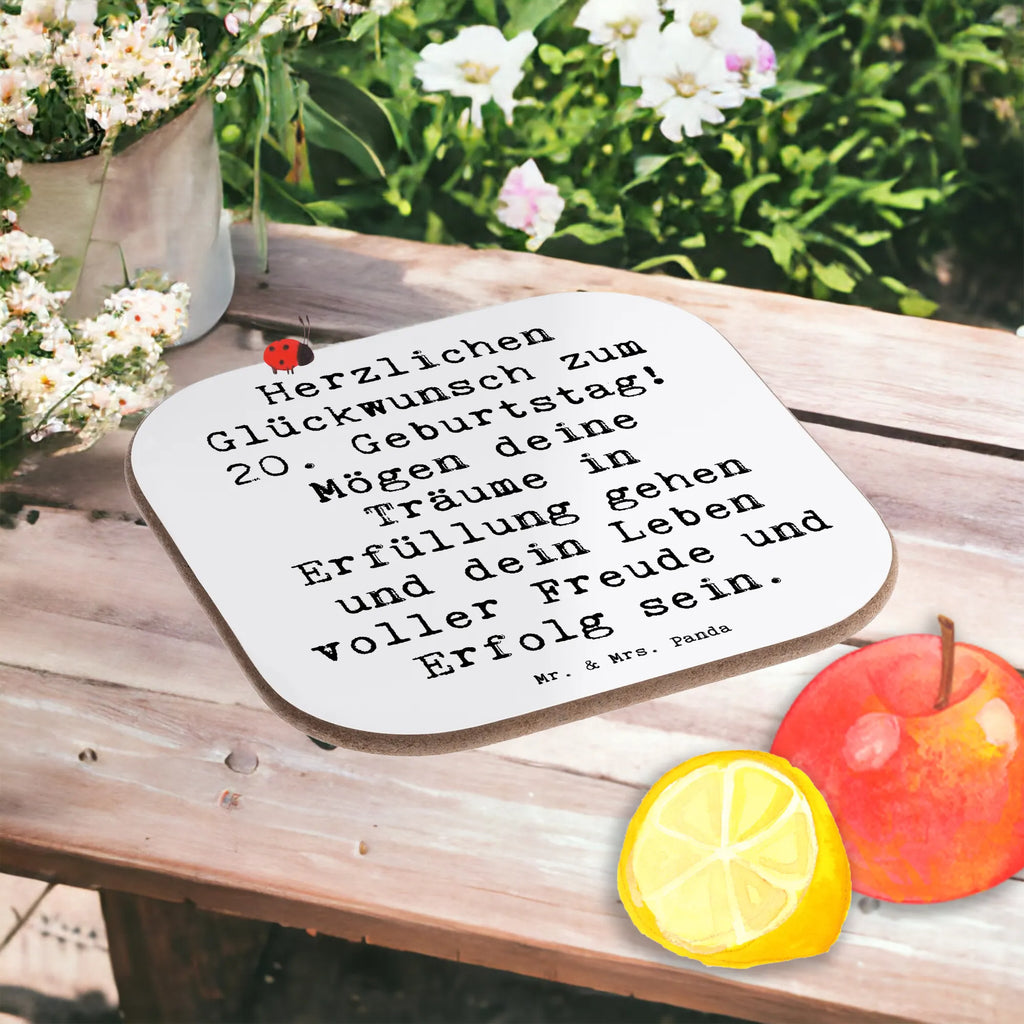 Herzlichen
Glückwunsch zum
20. Geburtstag!
Mögen deine
Träume in
Erfüllung gehen
und dein Leben
voller Freude und
Erfolg sein.
Mr. & Mrs. Panda